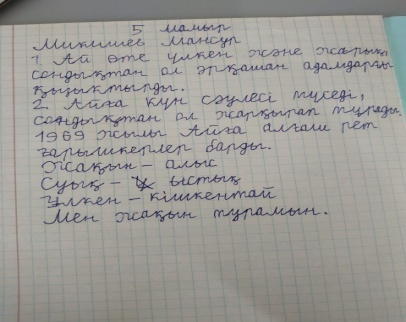 5 мамыр
Микишев Мансур
1 Ай өте үлкен және жарық,
сондықтан ол әрқашан адамдарды
қызықтырды.
2. Айға күн сәулесі түседі,
сондықтан ол жарқырап тұрады.
1969 жылы Айға алғаш рет
ғарышкерлер барды.
Жақын – алыс
Суық – ыстық
Үлкен – кішкентай
Мен жақын тұрамын.